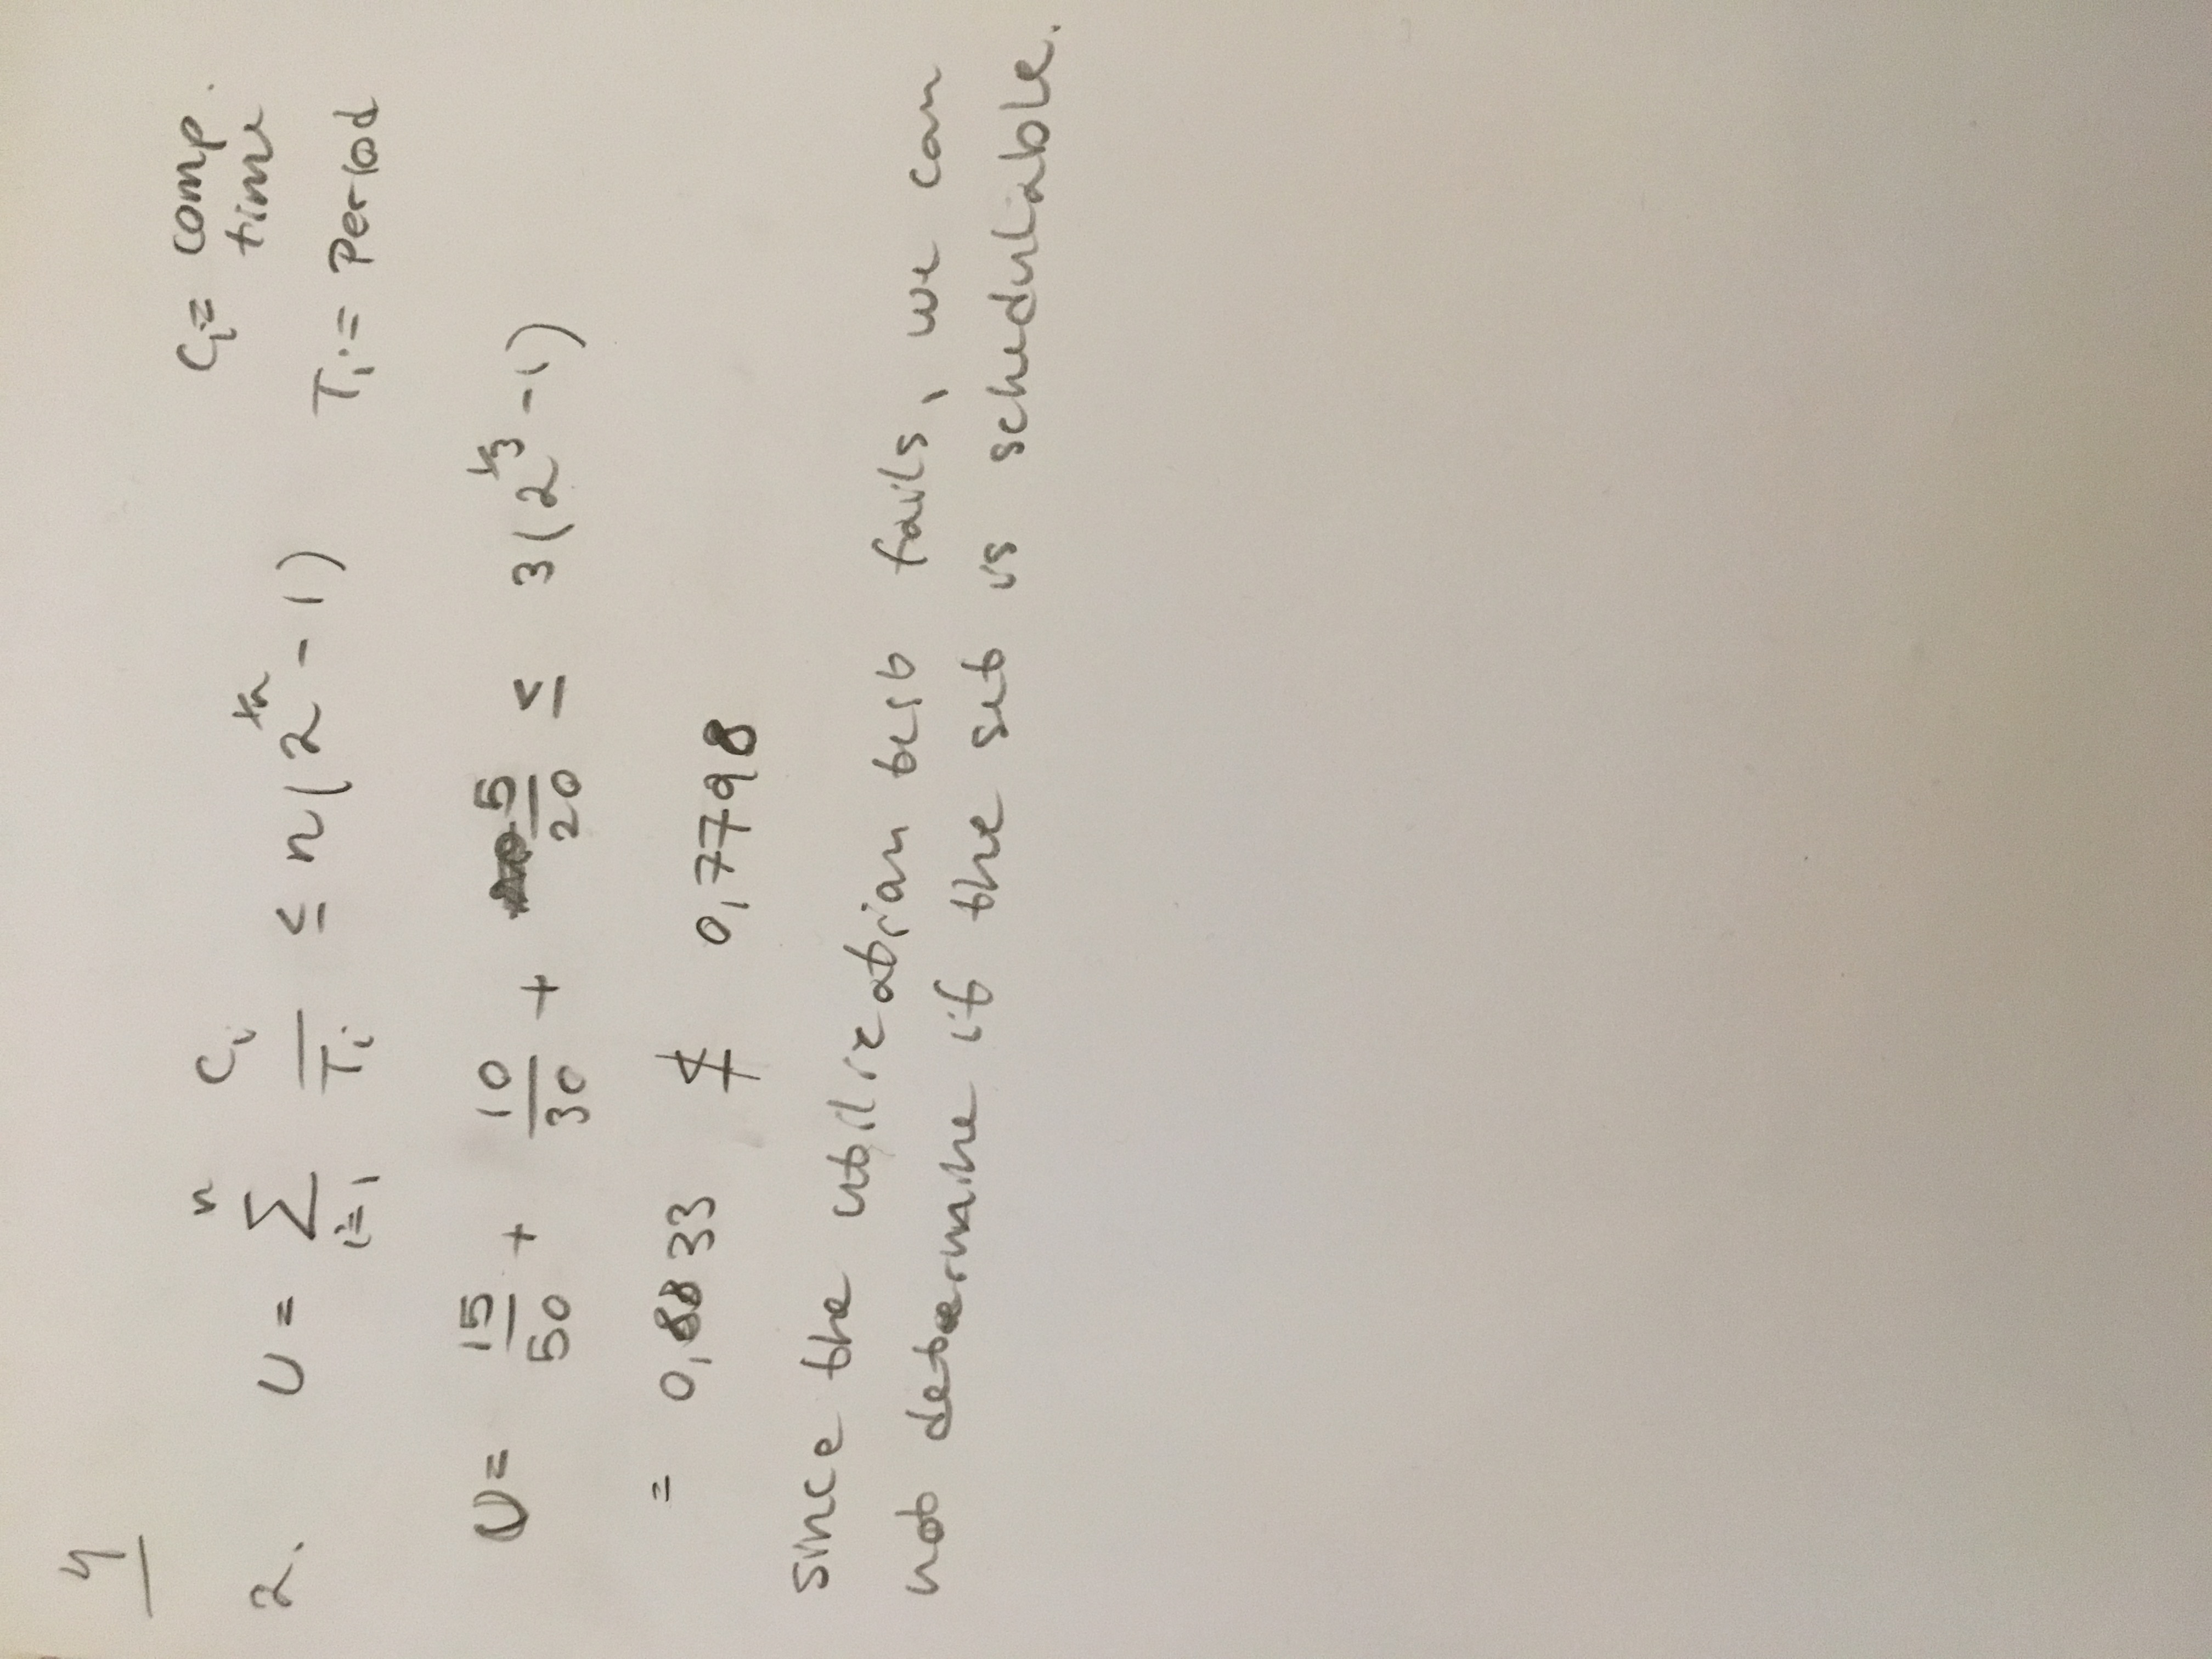 4
2. U = n Σ i=1 Ci / Ti ≤ n(2^1/n - 1)
Ci = comp. time
Ti = Period
U = 15/50 + 10/30 + 5/20 ≤ 3(2^1/3 - 1)
= 0,8833 ≰ 0,7798
since the utilization test fails, we can
not determine if the set is schedulable.